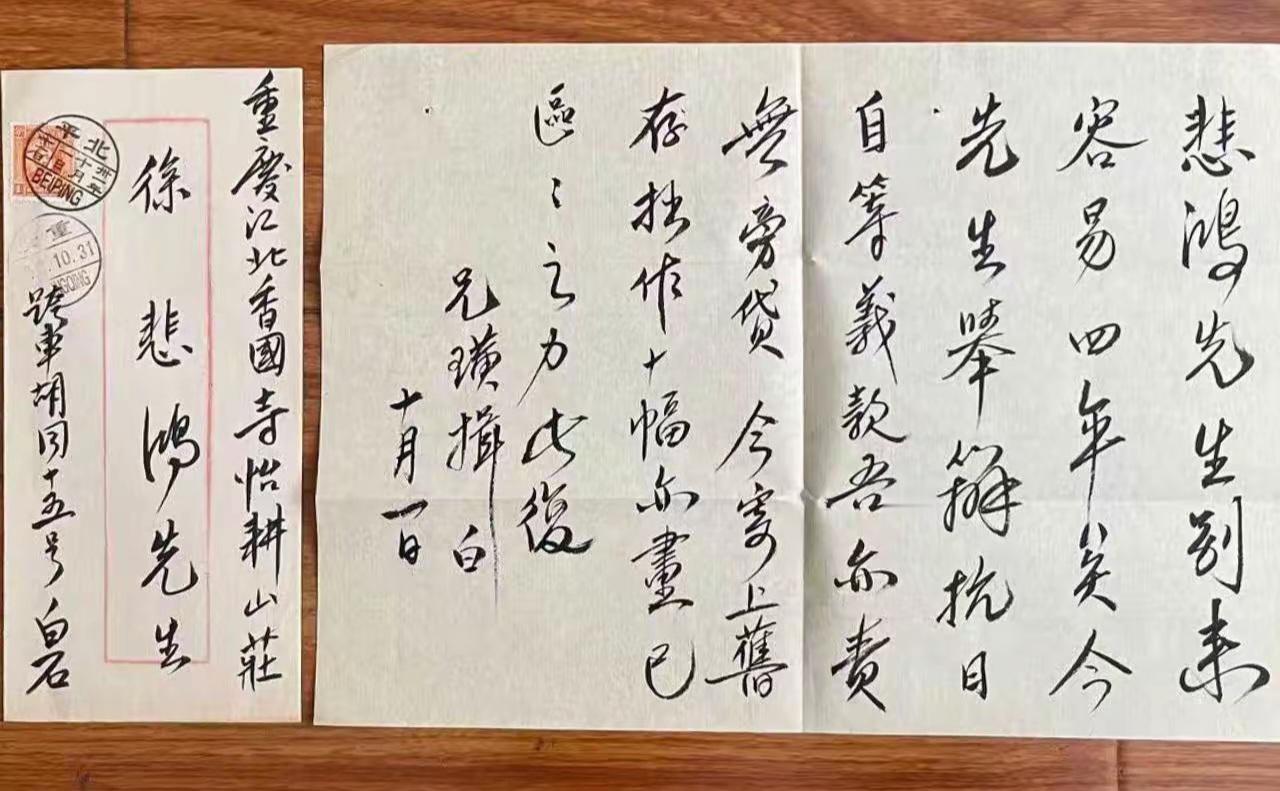 悲鴻先生別來
容易四年矣今
先生舉辦抗日
自筹義款吾亦責
無旁貸今寄上舊
存拙作十幅亦畫己
區〻之力此復
兄璜揖白
十月一日
重慶江北香國寺怡耕山莊
徐悲鴻先生
跨車胡同十五号白石
北平
BEIPING
重
10.31